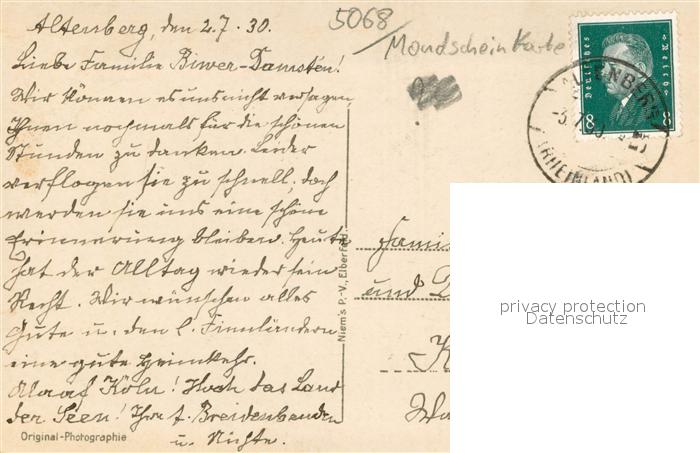 Altenberg, den 2.7.30.
Liebe Familie Biwer-Damstén!
Wir können es uns nicht versagen
Ihnen nochmals für die schönen
Stunden zu danken. Leider
verflogen sie zu schnell, doch
werden sie uns eine schöne
Erinnerung bleiben. Heute
hat der Alltag wieder sein
Recht. Wir wünschen alles
Gute u. den l. Finnländern
eine gute Heimkehr.
Alaaf Köln! Hoch das Land
der Seen! Ihre f. Breidenbenden
u. Nichte.
Original-Photographie
5068
Mondschein Karte
Deutsches Reich
8 8
ALTENBERG
(RHEINLAND)
Niem's P.-V., Elberfeld
Famil
und D
K
privacy protection
Datenschutz